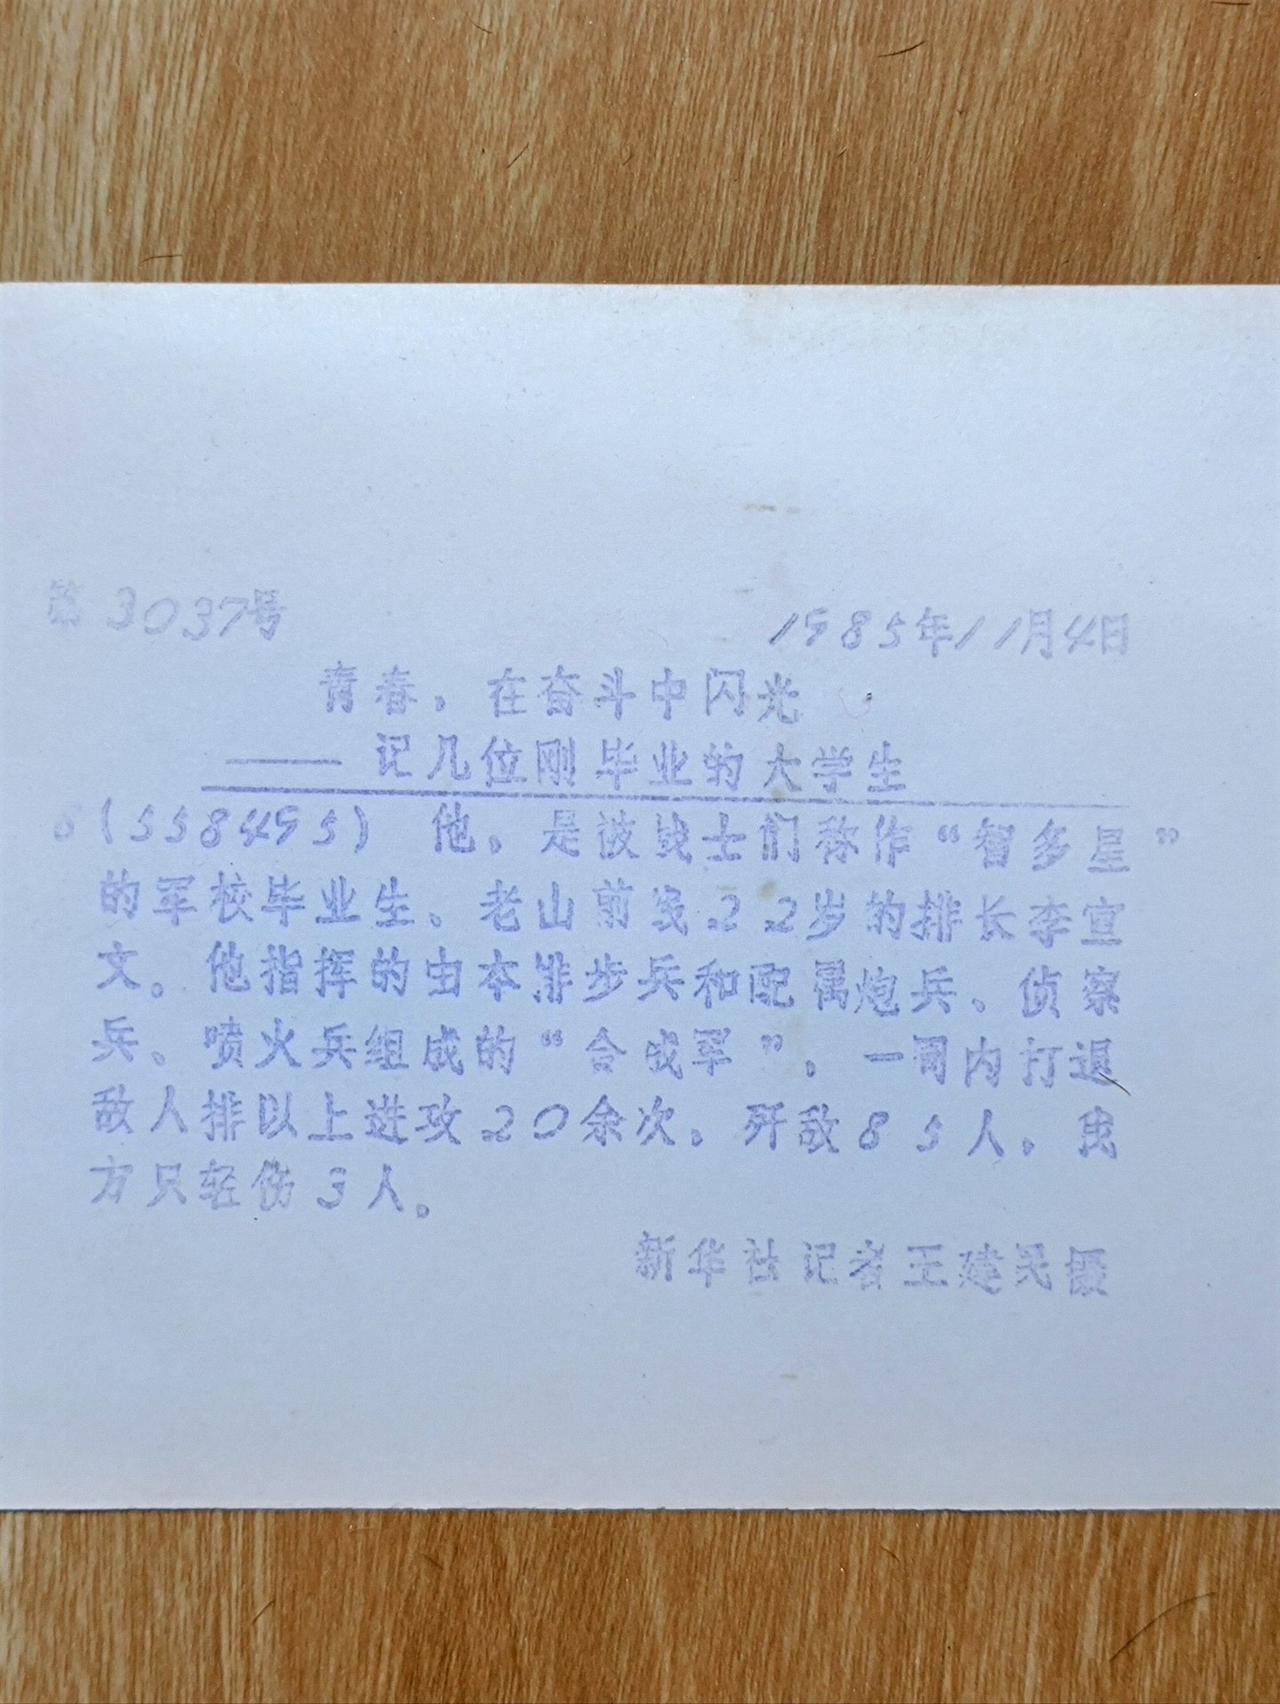 第3037号 1985年11月4日
青春，在奋斗中闪光
——记几位刚毕业的大学生
6(558495) 他，是被战士们称作“智多星”
的军校毕业生、老山前线22岁的排长李宣
文。他指挥的由本排步兵和配属炮兵、侦察
兵、喷火兵组成的“合成军”，一周内打退
敌人排以上进攻20余次，歼敌85人，我
方只轻伤3人。
新华社记者王建民摄